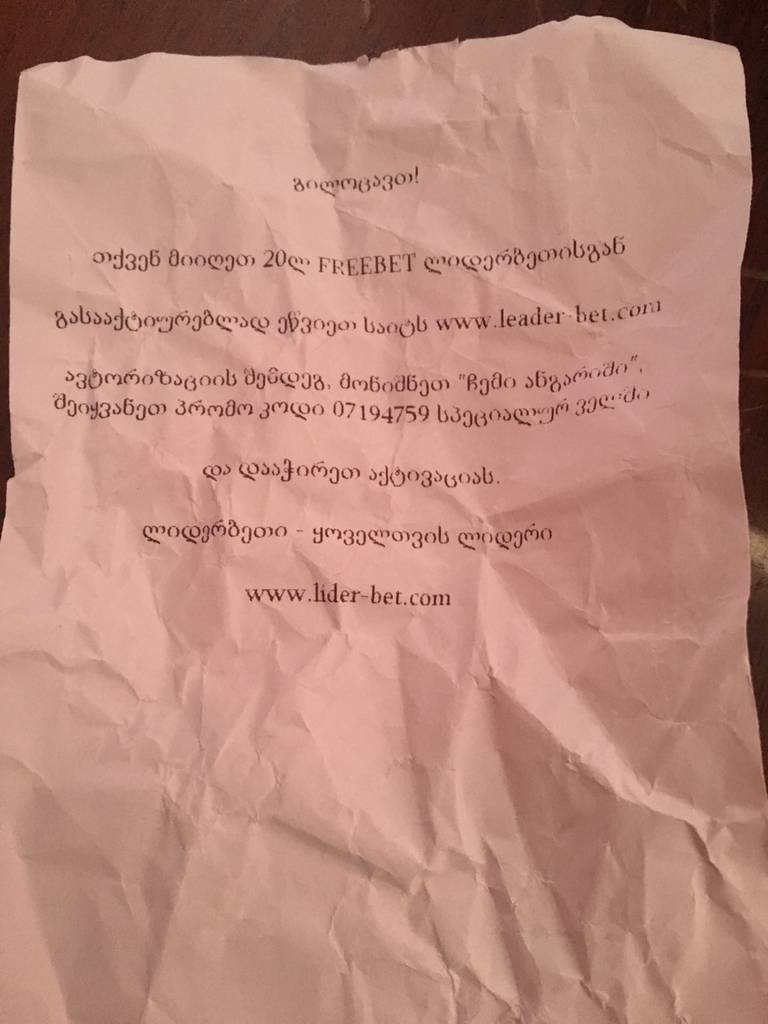 გილოცავთ!
თქვენ მიიღეთ 20ლ FREEBET ლიდერბეთისგან
გასააქტიურებლად ეწვიეთ საიტს www.leader-bet.com
ავტორიზაციის შემდეგ, მონიშნეთ "ჩემი ანგარიში",
შეიყვანეთ პრომო კოდი 07194759 სპეციალურ ველში
და დააჭირეთ აქტივაციას.
ლიდერბეთი - ყოველთვის ლიდერი
www.lider-bet.com